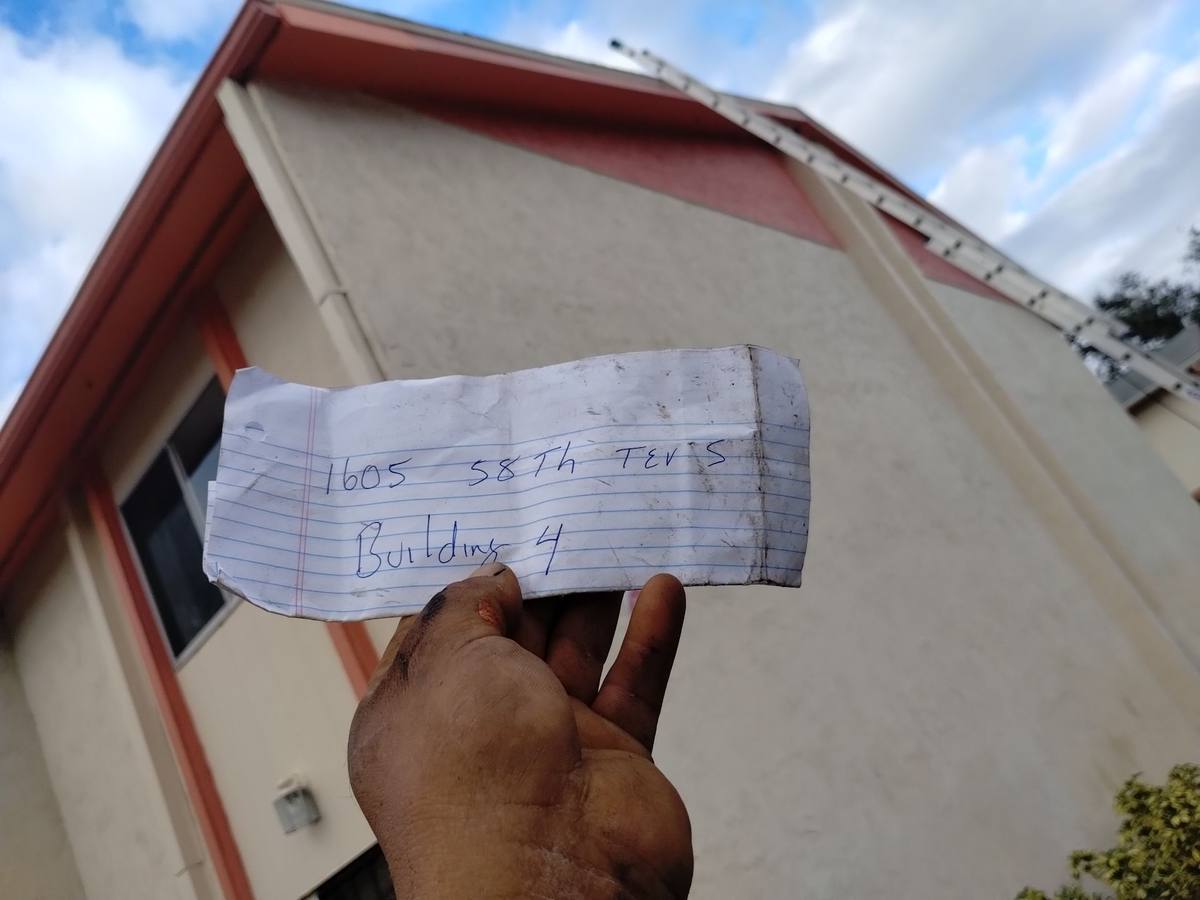 1605 58Th Ter S
Building 4